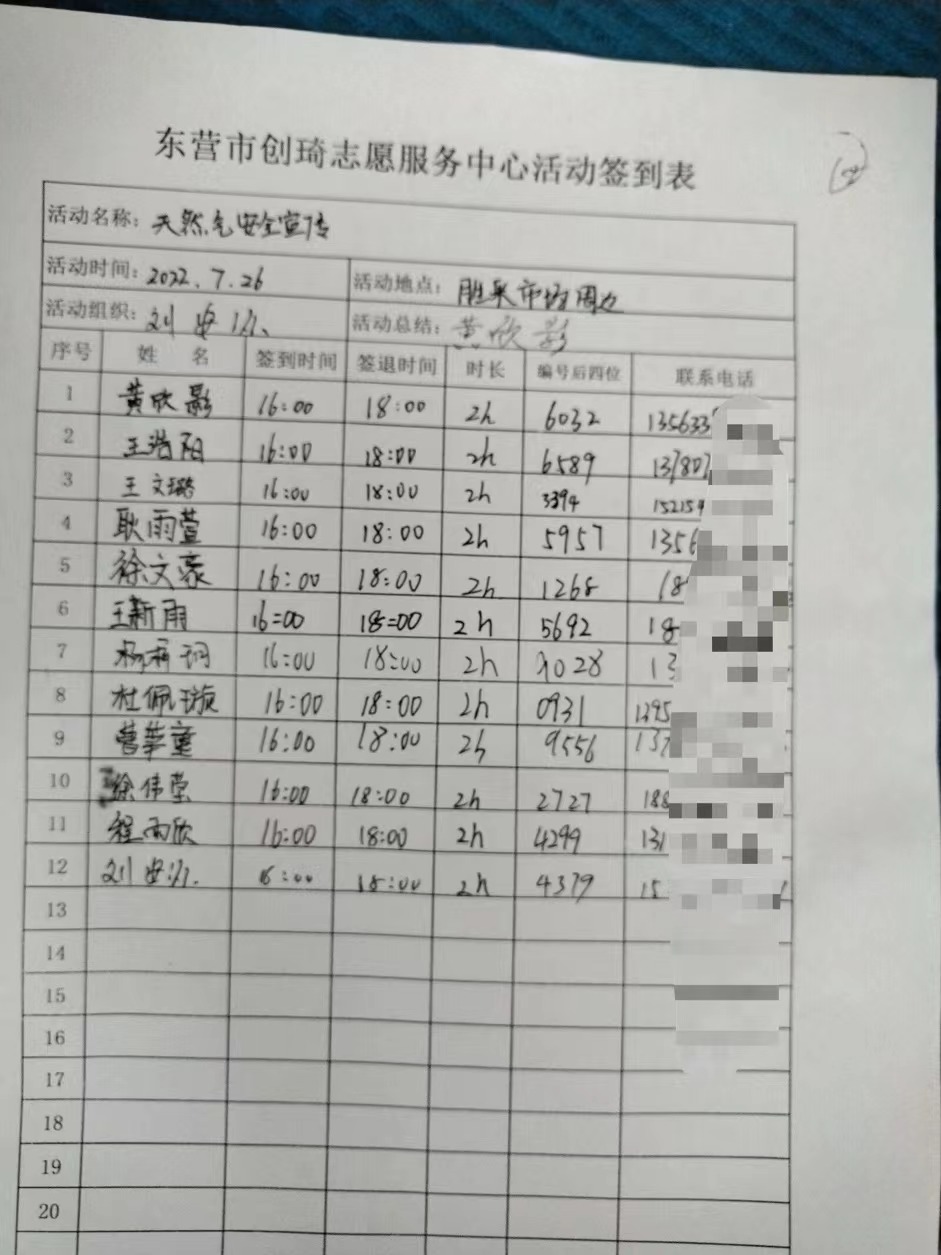 东营市创琦志愿服务中心活动签到表
活动名称: 天然气安全宣传
活动时间: 2022.7.26 活动地点: 胜采市场周边
活动组织: 刘 活动总结: 黄欣影
序号 姓 名 签到时间 签退时间 时长 编号后四位 联系电话
1 黄欣影 16:00 18:00 2h 6032 135633
2 王浩阳 16:00 18:00 2h 6589 13780
3 王文璐 16:00 18:00 2h 3394 152159
4 耿雨萱 16:00 18:00 2h 5957 1356
5 徐文豪 16:00 18:00 2h 1268 18
6 王新雨 16:00 18:00 2h 5692 18
7 杨 16:00 18:00 2h 028 13
8 杜佩璇 16:00 18:00 2h 0931 1395
9 16:00 18:00 2h 9556 137
10 徐伟莹 16:00 18:00 2h 2727 188
11 程雨欣 16:00 18:00 2h 4299 131
12 刘 16:00 18:00 2h 4379 15
13
14
15
16
17
18
19
20